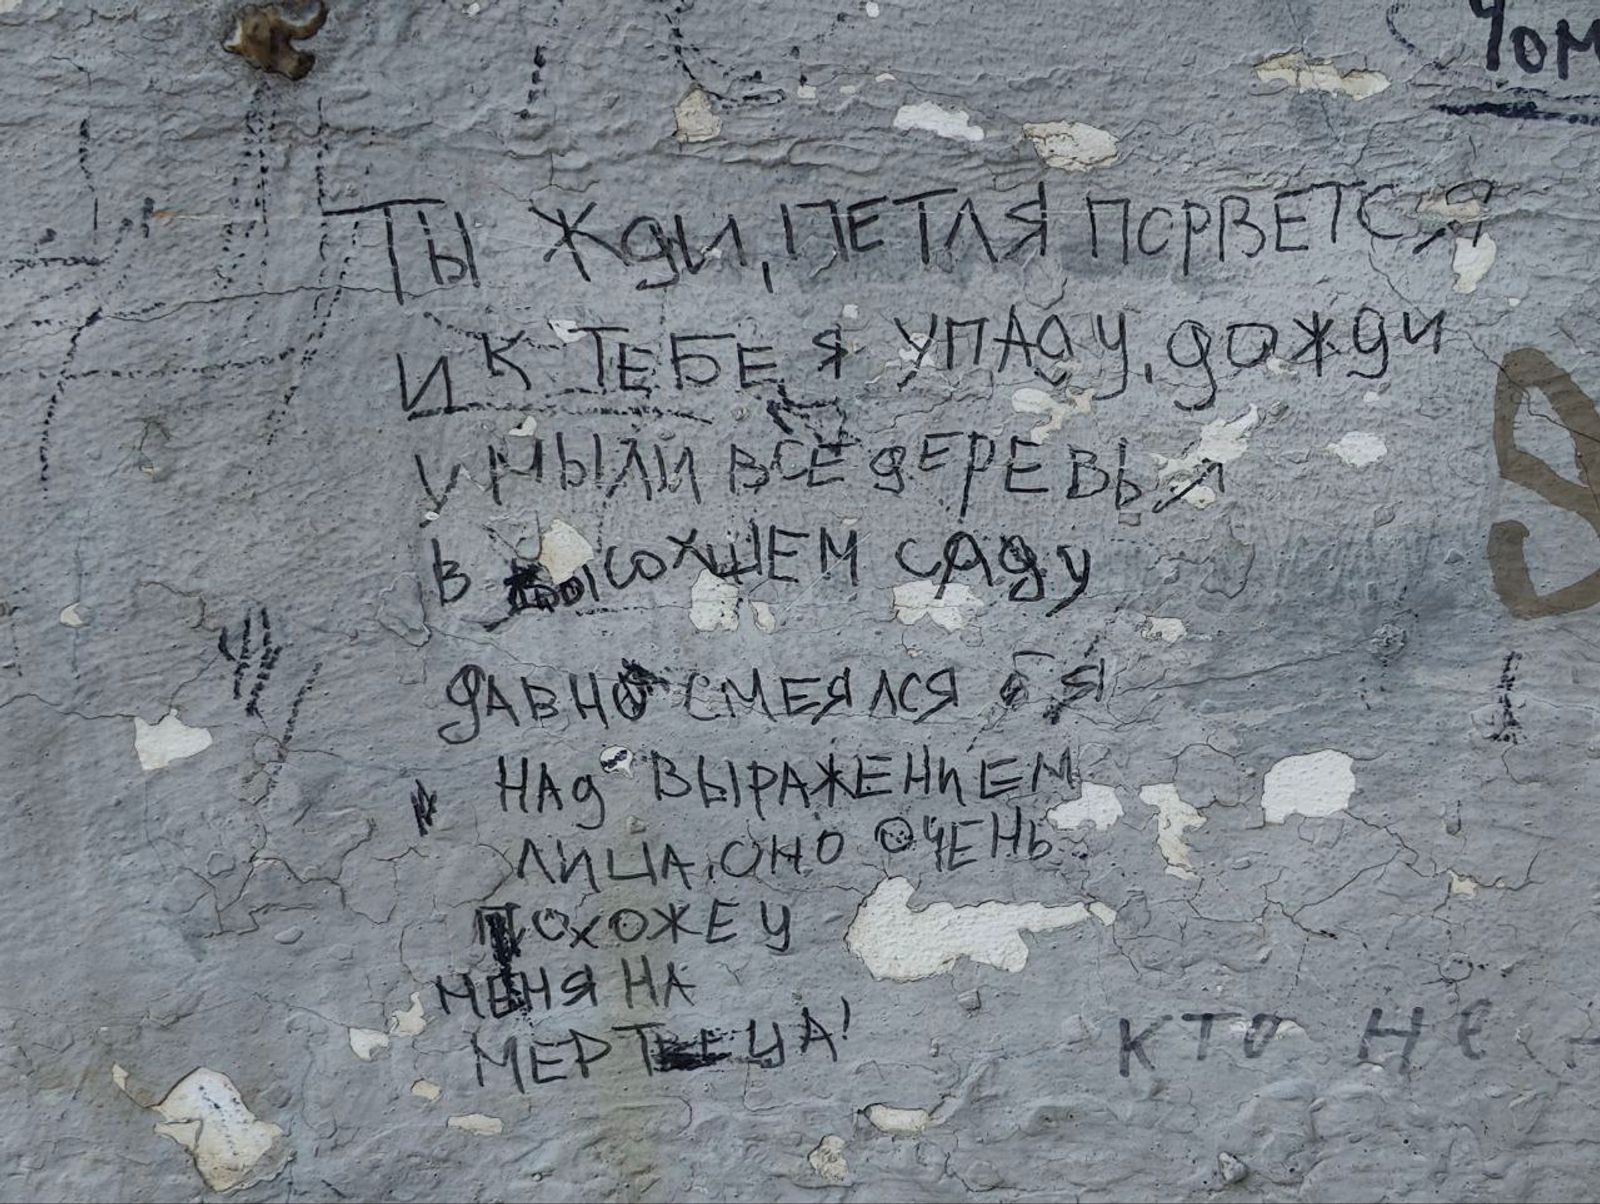 Чом
ТЫ ЖДИ, ПЕТЛЯ ПОРВЕТСЯ
И К ТЕБЕ Я УПАДУ, ДОЖДИ
УМЫЛИ ВСЕ ДЕРЕВЬЯ
В ВЫСОХШЕМ САДУ
ДАВНО СМЕЯЛСЯ Б Я
НАД ВЫРАЖЕНИЕМ
ЛИЦА, ОНО ОЧЕНЬ
ПОХОЖЕ У
МЕНЯ НА
МЕРТВЕЦА!
КТО НЕ